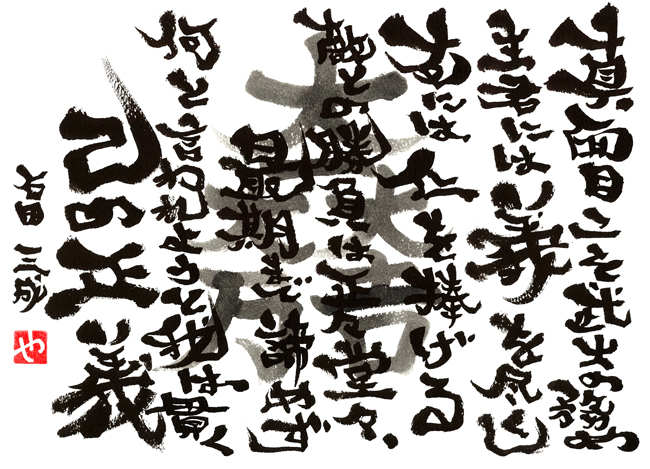 真面目こそ武士の務め
主君には義を尽くし
友には仁を捧げる
敵との勝負は正々堂々、
最期まで諦めず
何と言われようと我は貫く
己の正義
石田三成
や